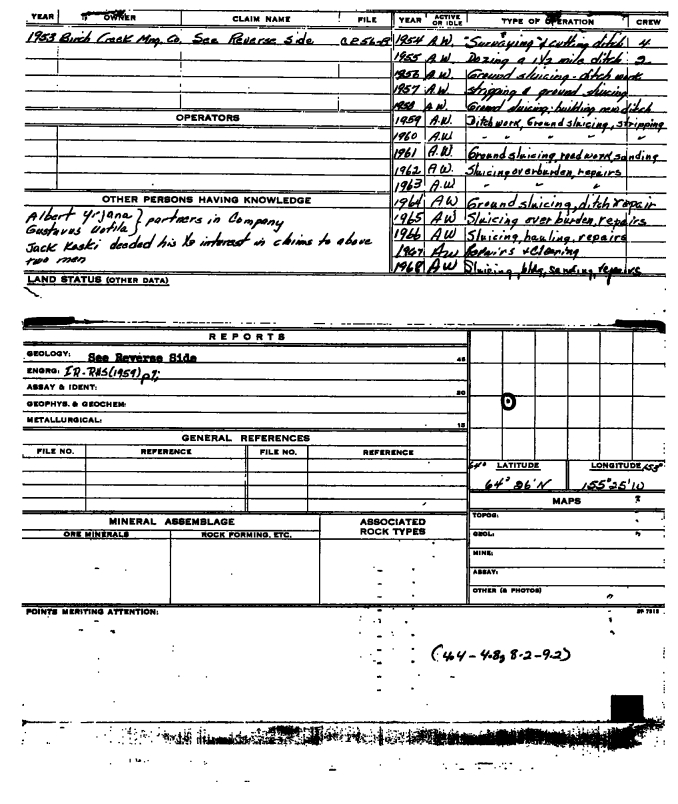 YEAR OWNER CLAIM NAME FILE
1953 Birch Creek Mng. Co. See Reverse Side
OPERATORS
OTHER PERSONS HAVING KNOWLEDGE
Albert Yrjana } partners in Company
Gustavus Uotila }
Jack Koski deeded his interest in claims to above
two men
LAND STATUS (OTHER DATA)
YEAR ACTIVE OR IDLE TYPE OF OPERATION CREW
1954 A.W. "Surveying" & cutting ditch 4
1955 A.W. Dozing a 1 1/2 mile ditch 2
1956 A.W. Ground sluicing - ditch work
1957 A.W. stripping & ground sluicing
1958 A.W. Ground sluicing; building new ditch
1959 A.W. Ditch work, Ground sluicing, stripping
1960 A.W " " "
1961 A.W. Ground sluicing, road work, sanding
1962 A.W. Sluicing overburden, repairs
1963 A.W " " "
1964 AW Ground sluicing, ditch repair
1965 AW Sluicing over burden, repairs
1966 AW Sluicing, hauling, repairs
1967 AW Repairs & Cleaning
1968 AW Sluicing, bldg, sanding, repairs
REPORTS
GEOLOGY: See Reverse Side 45
ENGRG: IR-RHS(1959) p7;
ASSAY & IDENT: 30
GEOPHYS. & GEOCHEM:
METALLURGICAL: 15
GENERAL REFERENCES
FILE NO. REFERENCE FILE NO. REFERENCE
MINERAL ASSEMBLAGE
ORE MINERALS ROCK FORMING, ETC.
ASSOCIATED
ROCK TYPES
64° LATITUDE LONGITUDE 155°
64° 26'N 155° 25'W
MAPS
TOPOG:
GEOL:
MINE:
ASSAY:
OTHER (& PHOTOS)
POINTS MERITING ATTENTION:
(4.4 - 4.8, 8.2 - 9.2)